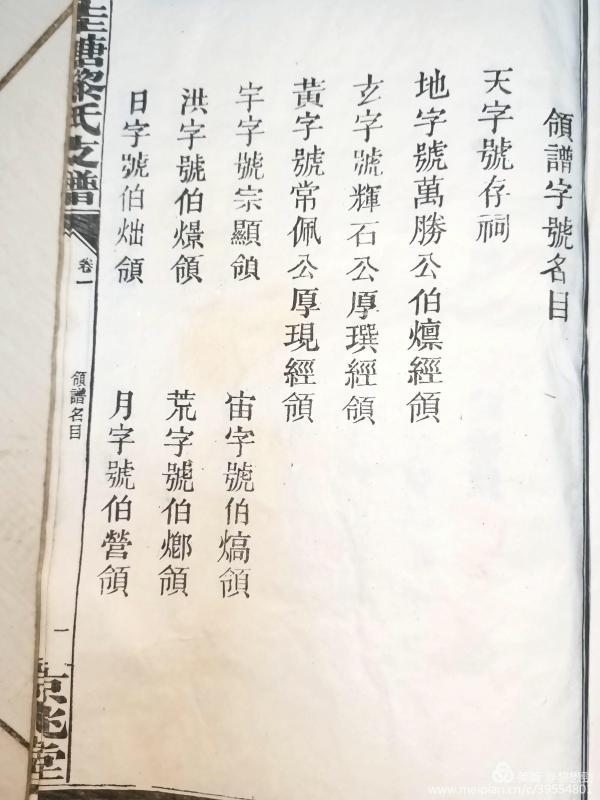 領譜字號名目
天字號存祠
地字號萬勝公伯燣經領
玄字號輝石公厚璵經領
黃字號常佩公厚現經領
宇字號宗顯領
宙字號伯熇領
洪字號伯燝領
荒字號伯鄕領
日字號伯炪領
月字號伯營領
塘黎氏支譜
卷一
領譜名目
一
京兆堂
美篇
www.meipian.cn/c/39554801